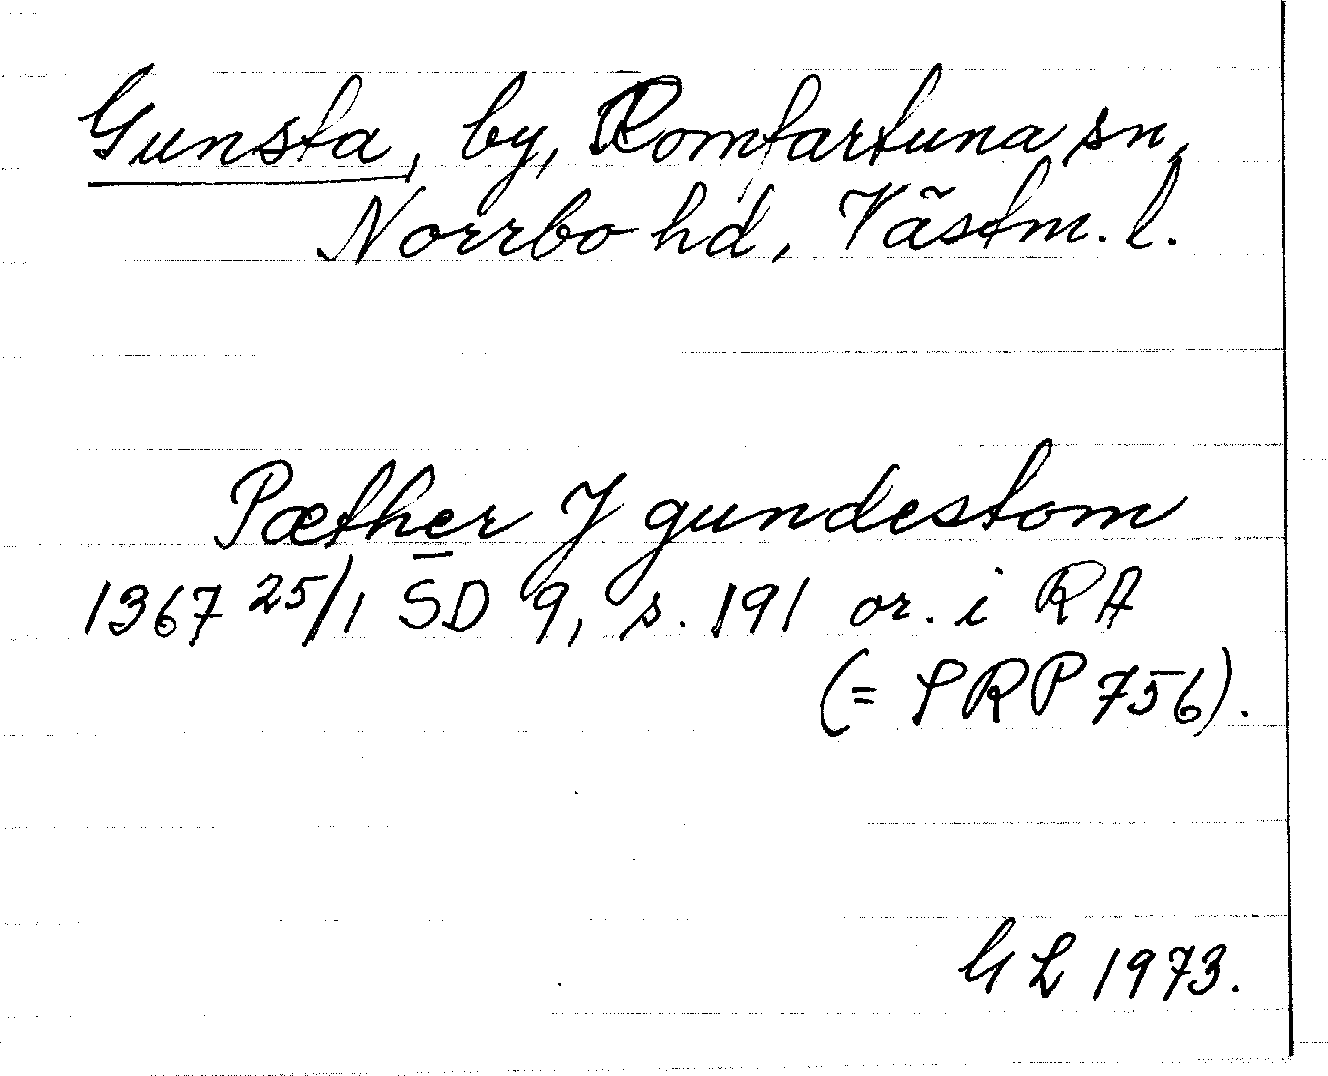 Gunsta, by, Romfartuna sn,
Norrbo hd, Västm. l.
Pæther J gundestom
1367 25/1 SD 9, s. 191 or. i RA
(= SRP 756).
GL 1973.